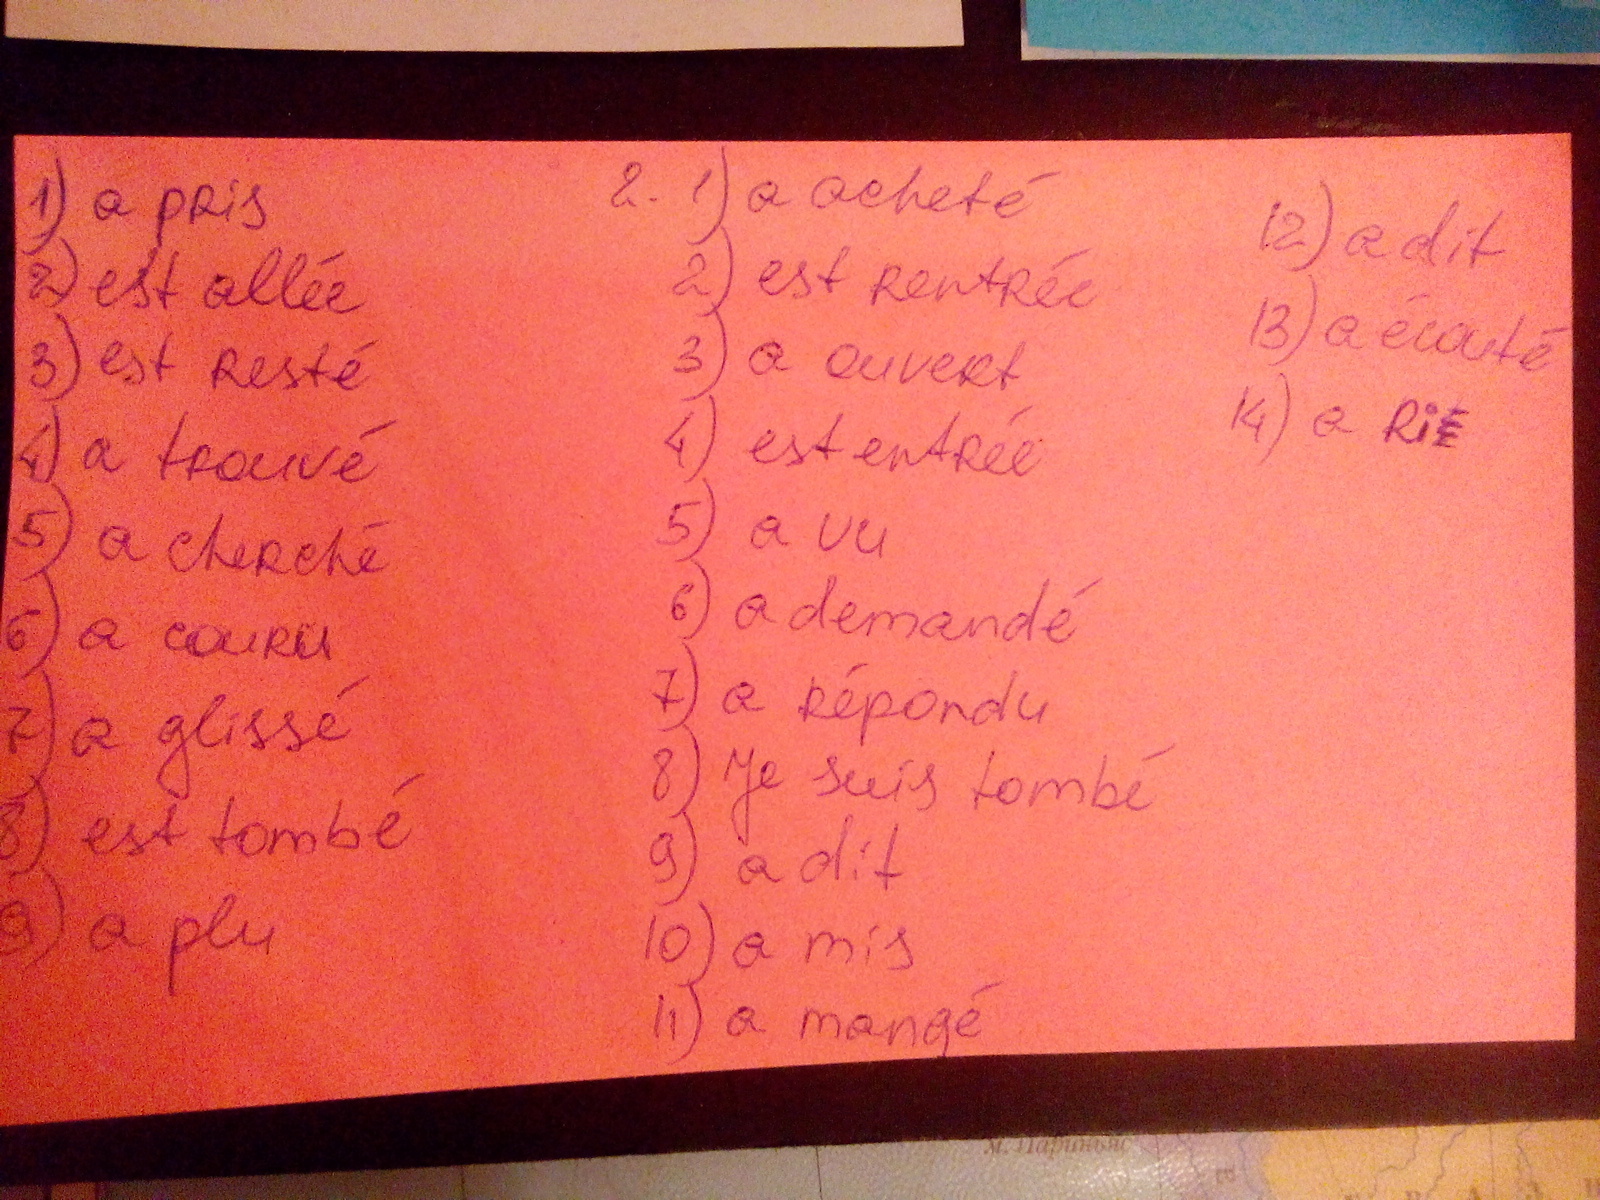 1) a pris
2) est allée
3) est resté
4) a trouvé
5) a cherché
6) a couru
7) a glissé
8) est tombé
9) a plu
2. 1) a acheté
2) est rentrée
3) a ouvert
4) est entrée
5) a vu
6) a demandé
7) a répondu
8) Je suis tombé
9) a dit
10) a mis
11) a mangé
12) a dit
13) a écouté
14) a ri